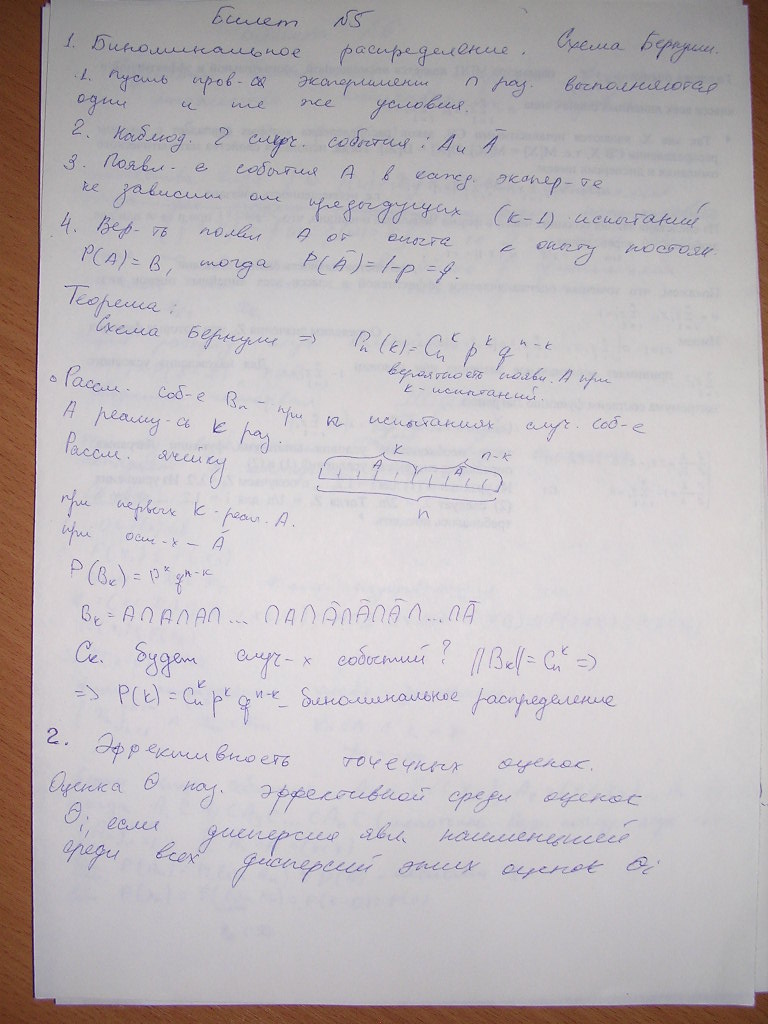 Билет №5
1. Биноминальное распределение. Схема Бернули.
1. Пусть пров-ся эксперимент n раз. выполняются
одни и те же условия.
2. Наблюд. 2 случ. события: A и Ā
3. Появл-е события A в кажд. экспер-те
не зависит от предыдущих (k-1) испытаний
4. Вер-ть появл A от опыта к опыту постоян.
P(A)=B, тогда P(Ā)=1-p=q.
Теорема:
Схема Бернули => Pn(k)=Cn^k p^k q^n-k
вероятность появл. A при
k-испытаний.
Рассм. соб-е Bn - при n испытаниях случ. соб-е
A реализ-сь k раз.
Рассм. ячейку
k n-k
A Ā
n
при первых k-реал. A.
при ост-х - Ā
P(Bk)=p^k q^n-k
Bk=A∩A∩A∩... ∩A∩Ā∩Ā∩Ā∩...∩Ā
Ск. будет случ-х событий? ||Bk||=Cn^k =>
=> P(k)=Cn^k p^k q^n-k - биноминальное распределение
2. Эффективность точечных оценок.
Оценка Θ наз. эффективной среди оценок
Θi, если дисперсия явл наименьшей
среди всех дисперсий этих оценок Θi